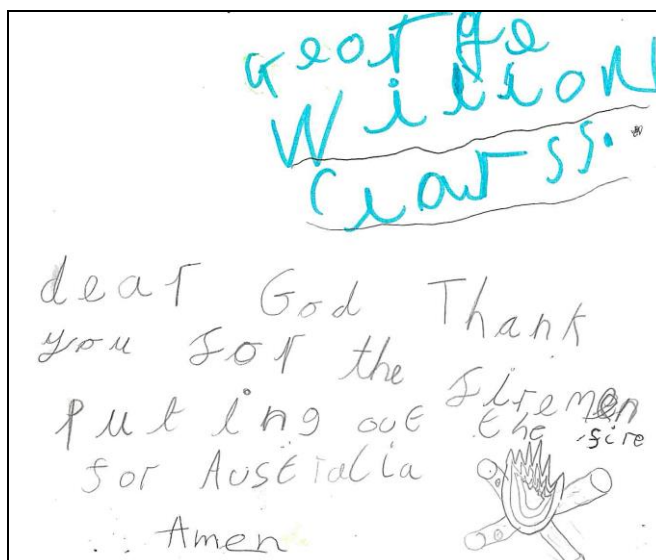 George
Willow
Class.
dear God Thank
you for the firemen
Put ing out the fire
for Australia
Amen